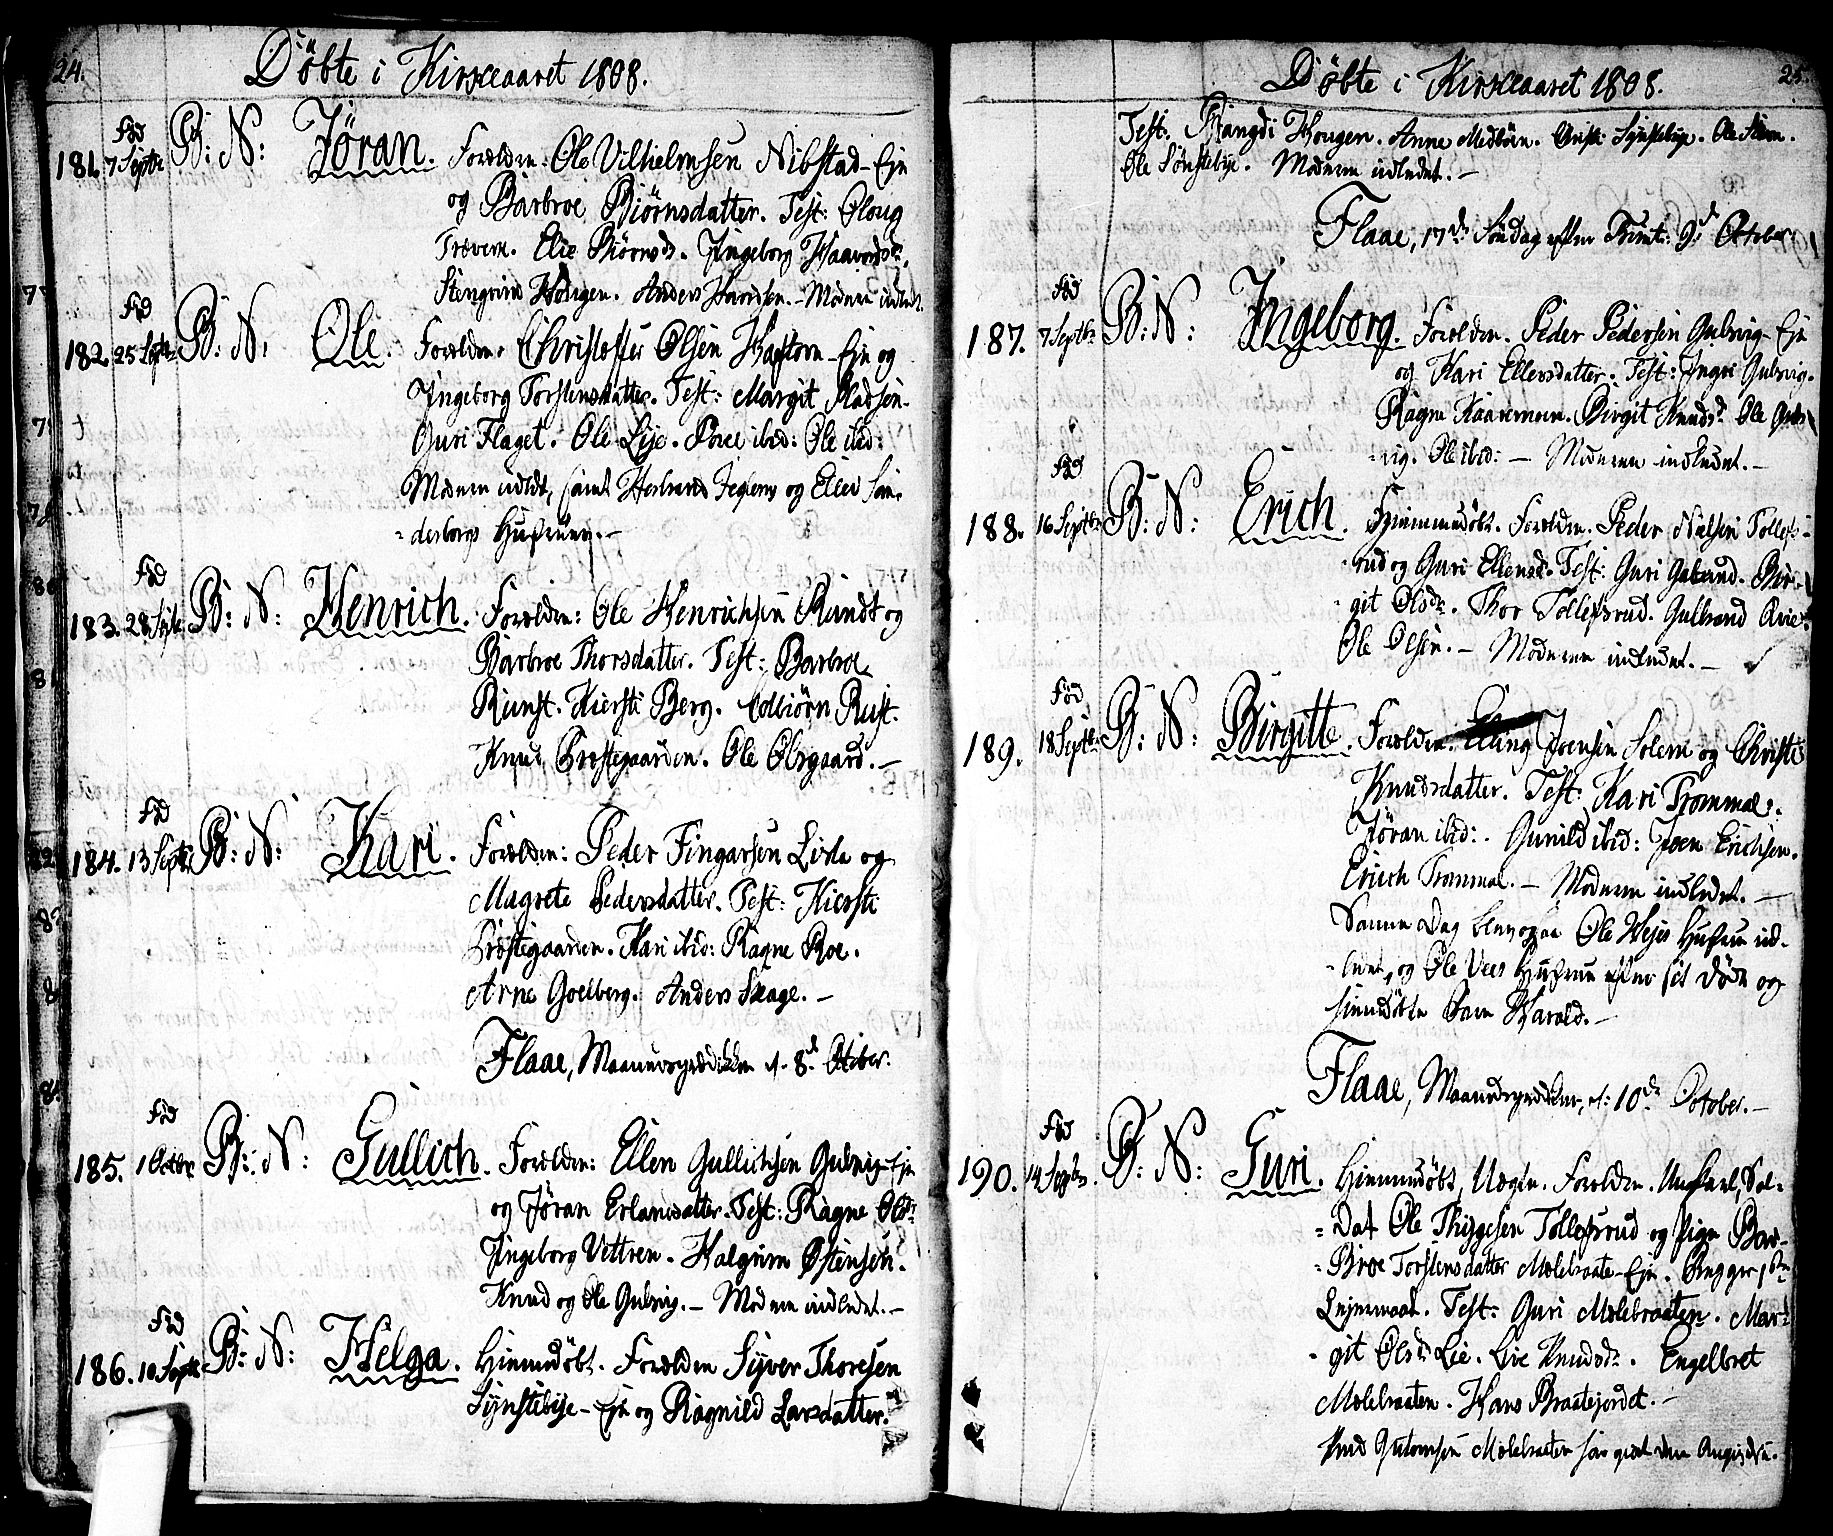 24.
Døbte i Kirkeaaret 1808.
181. Fød 7 Septbr B: N: Jøran. Forældre: Ole Vilhelmsen Nibstad-Eje
og Barbroe Biørnsdatter. Test: Oloug
Trævem. Elie Biørnsd. Ingeborg Haavordsdr.
Stengrim Hougen. Anders Havordsen. - Moderen indledt.
182. Fød 25 Septbr B: N: Ole. Forældre: Christoffer Olsen Haftorn-Eje og
Ingeborg Torstensdatter. Test: Margit Pladsen.
Guri Flaget. Ole Lije. ibid: Ole ibid:
Moderen indledt, samt Herbrand og Elles San-
derborgs Hustruer. -
183. Fød 28 Septbr B: N: Henrich. Forældre: Ole Henrichsen Rundt og
Barbroe Thorsdatter. Test: Barbroe
Runst. Kiersti Berg. Rust.
Knud Prestegaarden. Ole Olsgaard. -
184. Fød 13 Septbr B: N: Kari. Forældre: Peder Fingarsen Lisla og
Magrete Pedersdatter. Test: Kiersti
Prestegaarden. Kari ibid: Ragne Roe.
Arne Goelberg. Anders Skage. -
Flaae, d. 8de October.
185. Fød 1 Octbr B: N: Gullich. Forældre: Ellen Gullichsen Gulsvig-Eje
og Jøran Erlandsdatter. Test: Ragne Olsdr
Ingeborg Vettren. Halgrim Østensen.
Knud og Ole Gulsvig. - Moderen indledet. -
186. Fød 10 Septbr B: N: Helga. Hiemmedøbt. Forældre Syver Thoresen
Synstebye-Eje og Ragnild Larsdatter.
25.
Døbte i Kirkeaaret 1808.
Test: Rangdi Hougen. Anne Medbøen. Synstebye. Ole
Ole Sønstebye. Moderen indledet. -
Flaae, 17de Søndag efter Trinit: 9de October
187. Fød 7 Septbr B: N: Ingeborg. Forældre. Peder Pedersen Gulsvig-Eje
og Kari Ellensdatter. Test: Ingri Gulsvig.
Ragne Kaavernoen. Birgit Knudsdr Ole Guls-
vig. Ole ibid: - Moderen indledet. -
188. Fød 16 Septbr B: N: Erich. Hiemmedøbt. Forældre. Peder Nielsen Tollefs-
rud og Guri Ellensd. Test: Guri Bir-
git Olsdr. Thor Tollefsrud. Gulbrand Qvie.
Ole Olsen. - Moderen indledet. -
189. Fød 18 Septbr B: N: Birgitte. Forældre. Elling Joensen Solem og Christi
Knudsdatter. Test: Kari Trommal.
Jøran ibid: Gunild ibid: Joen Erichsen.
Erich Trommal. - Moderen indledet. -
Samme Dag blev ogsaa Ole Hejes Hustrue ind-
ledet, og Ole Vees Hustrue efter sit døde og
hiemdøbte Barn Harald. -
Flaae, d: 10de October. -
190. Fød 14 Septbr. B: N: Guri. Hiemmedøbt, Uægte. Forældre. Ungkarl, Sol-
dat Ole Thygesen Tollefsrud og Pige Bar-
broe Torstensdatter Molebraate-Eje. Begges 1ste
Lejermaal. Test: Guri Molebraaten. Mar-
git Olsdr Lie. Live Knudsdr. Engelbret
Molebraaten. Hans Braatejordet. -
Knud Guttormsen Molebraaten har giort den Angivelse.